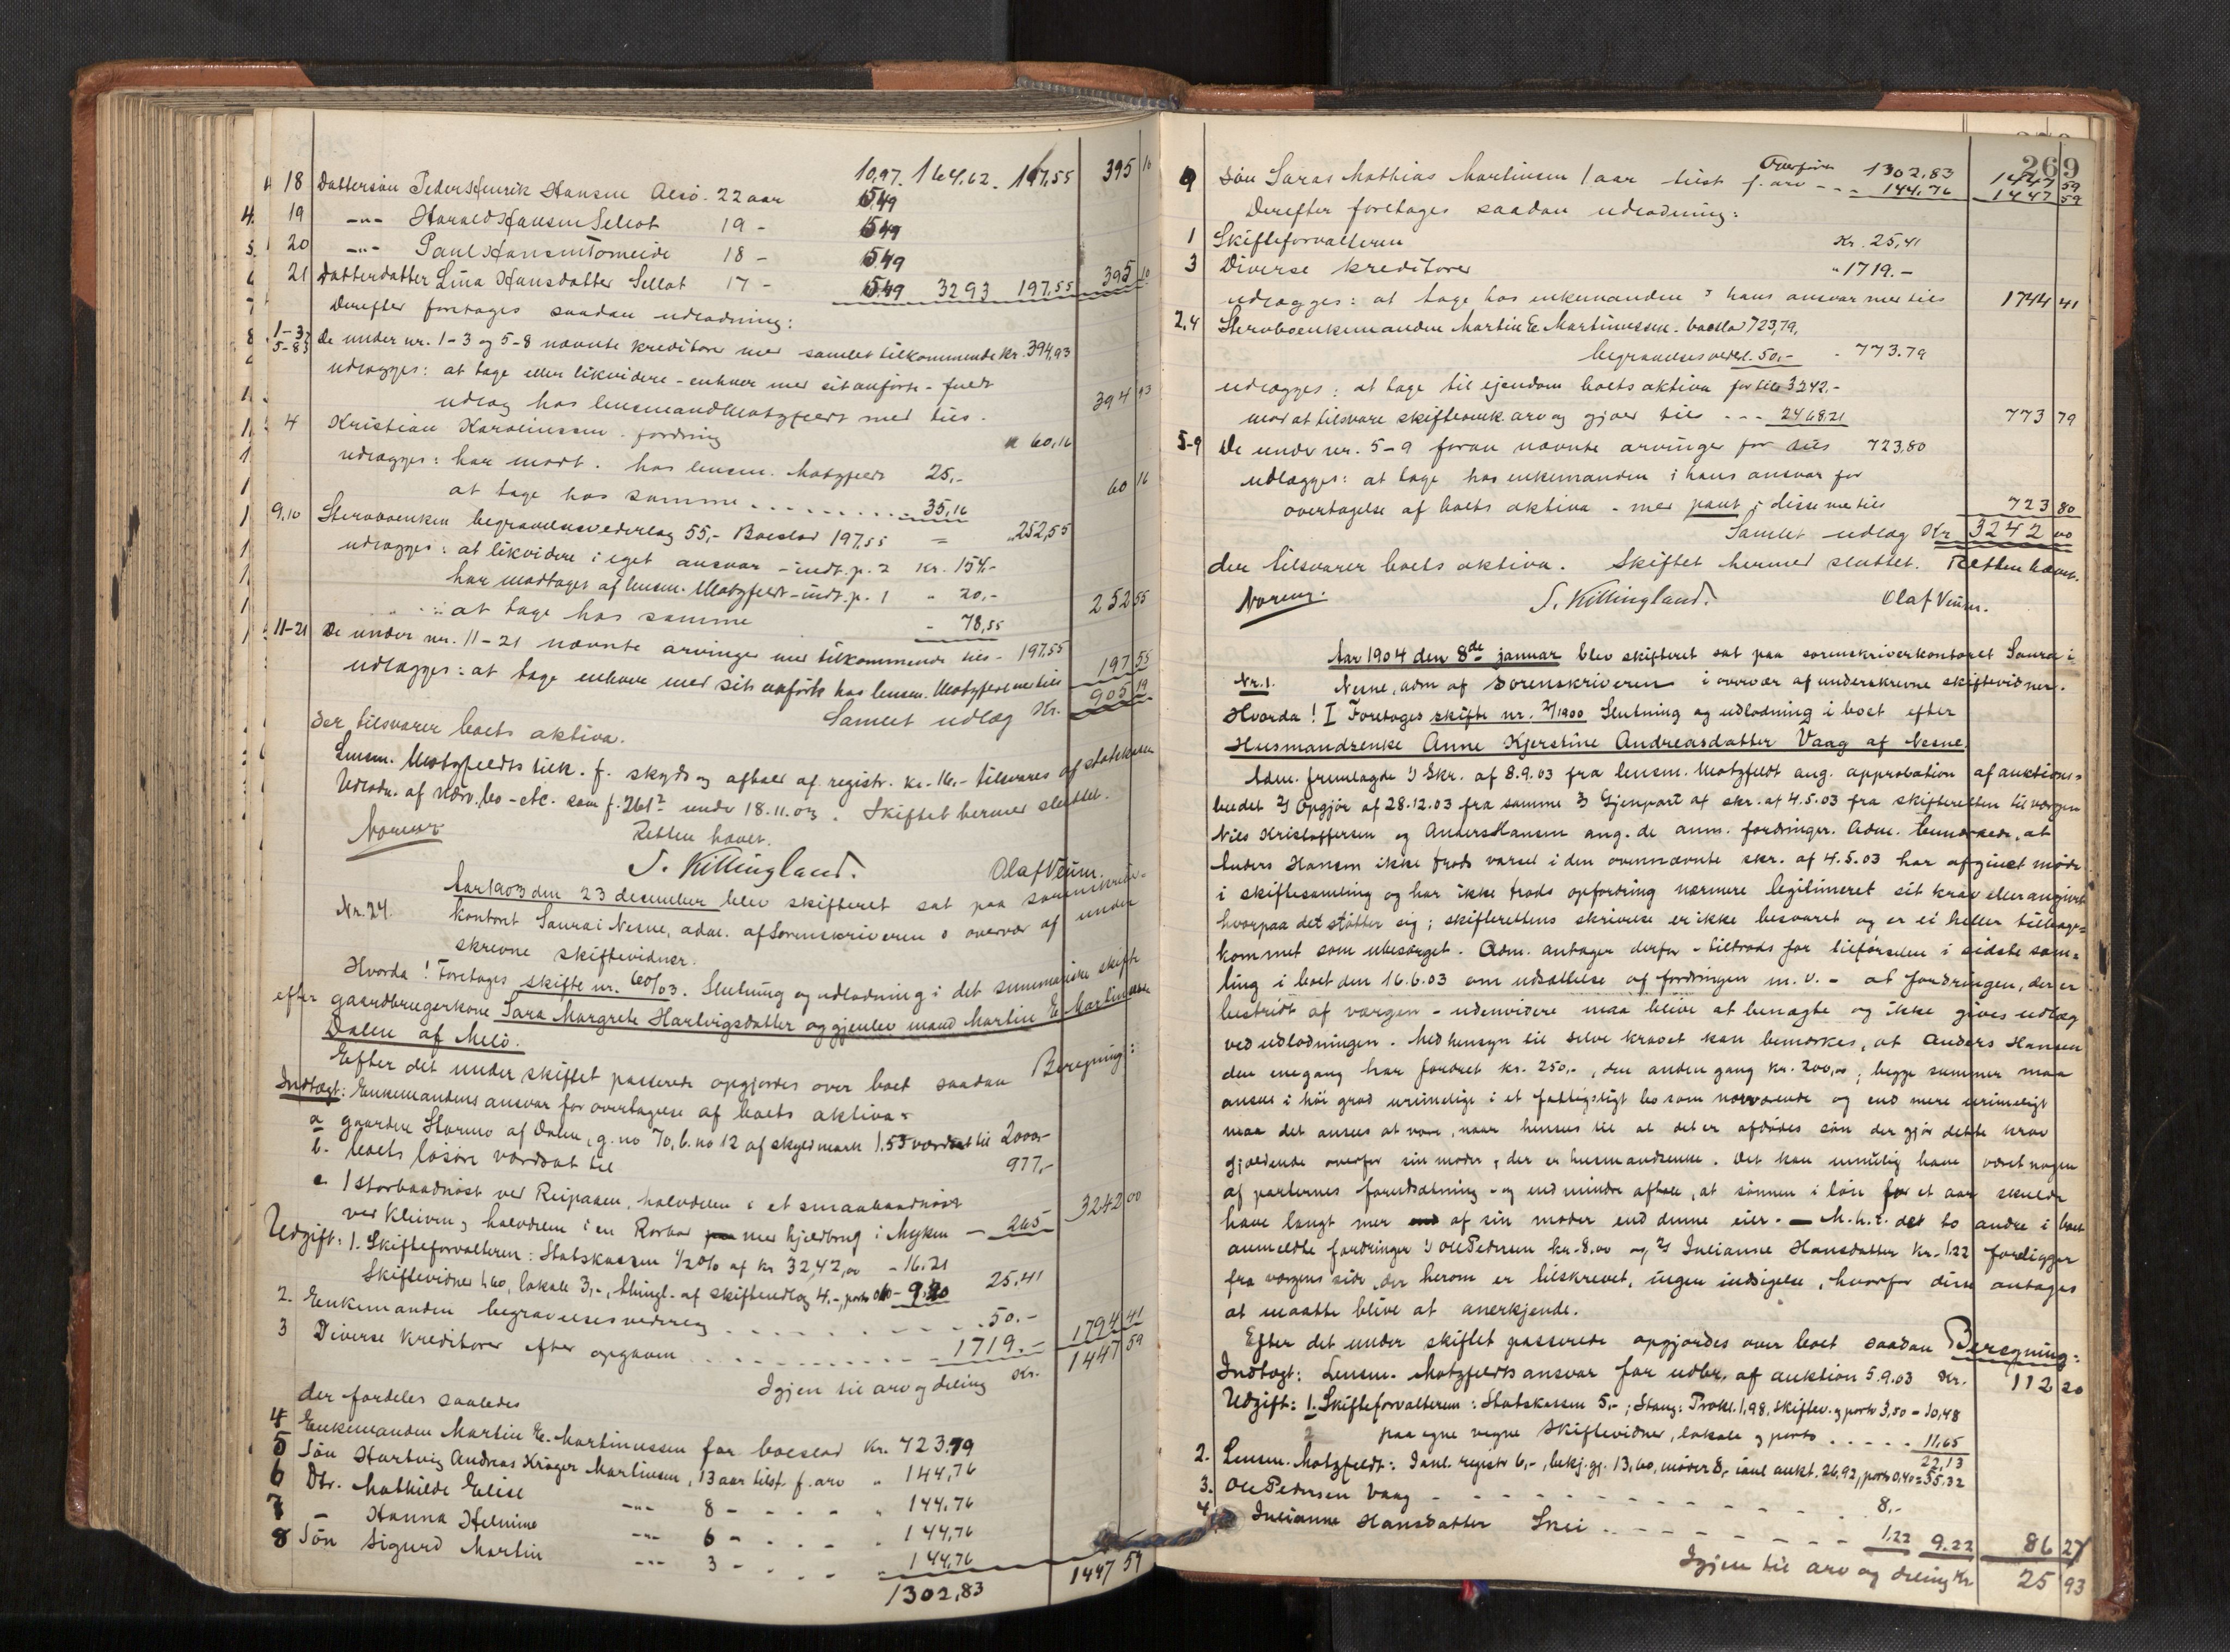 10,97. 164,62. 197,55 395 10
18 Dattersøn Peder Henrik Hansen Alsø. 22 aar 5,49
19 -"- Harald Hansen Selbot 19 - 5,49
20 -"- Paul Hansen Tomeide 18 - 5,49
21 Datterdatter Lina Hansdatter Selbot 17 - 5,49 32 93 197,55 395 10
Derefter foretages saadan udlodning:
1-3 5-8 De under nr. 1-3 og 5-8 nævnte kreditorer med samlet tilkommende Kr. 394,93
udlægges: at tage eller likvidere - enhver med sit anførte - fuldt
udlæg hos lensmand Motzfeldt med tils. 394 93
4 Kristian Karolinussen. fordring " 60,16
udlægges: har modt. hos lensm. Motzfeldt 25,-
at tage hos samme 35,16 60 16
9.10 Stervboenken begravelsesvederlag 55,- Boeslod 197,55 = " 252,55
udlægges: at likvidere i eget ansvar - indt. p. 2 kr. 154.-
har modtaget af lensm. Motzfeldt - indt. p. 1 " 20,-
at tage hos samme - 78,55 252 55
11-21 De under nr. 11-21 nævnte arvinger med tilkommende tils - 197,55
udlægges: at tage enhver med sit anførte hos lensm. Motzfeldt med tils 197 55
Samlet udlæg Kr. 905 19
der tilsvarer boets aktiva.
Lensm. Motzfeldts tilk. f. skyds og afhold af registr. kr. 16.- tilsvares af statskassen
Udlodn. af nærv. bo - etc. som f. 261² under 18.11.03. Skiftet hermed sluttet.
Retten hævet.
S. Killingland. Olaf Veum.
Nr. 24. Aar 1903 den 23 december blev skifteret sat paa sorenskriver-
kontoret Saura i Nesne, adm. af Sorenskriveren i overvær af under
skrevne skiftevidner.
Hvorda! Foretages skifte nr. 60/03. Slutning og udlodning i det summariske skifte
efter gaardbrugerkone Sara Margrete Hartvigsdatter og gjenlev. mand Martin E. Martinussen
Dalen af Melö.
Efter det under skiftet passerede opgjordes over boet saadan Beregning:
Indtægt: Enkemandens ansvar for overtagelse af boets aktiva:
a gaarden Stormo af Dalen, g.no 70, b.no 12 af skyld mark 1.53 værdsat til 2000,-
b. boets løsøre værdsat til 977,-
c 1 storbaadnøst ved Reipaaen, halvdelen i et smaabaadnøst
ved Kleiven og halvdelen i en Rorbod med hjeldbrug i Myken - 265 3242 00
Udgift: 1. Skifteforvalteren: Statskassen ½% af kr 3242,00 - 16.21
Skiftevidner 1,60, lokale 3,-, thingl. af skifteudlæg 4.-, porto 0,60 - 9.20 25,41
2. Enkemanden begravelsesvederlag . 50.-
3 Diverse kreditorer efter opgaven - 1719.- 1794 41
Igjen til arv og deling Kr. 1447 59
der fordeles saaledes
4 Enkemanden Martin E. Martinussen for boeslod Kr. 723,79
5 Søn Hartvig Andreas Krøger Martinsen, 13 aar tilst. f. arv " 144,76
6 Dtr. Mathilde Elise -"- 8 - " 144,76
7 - Hanna Helmine -"- 6 - " 144,76
8 Søn Sigurd Martin -"- 3 - " 144,76
1302,83 1447 59
269
Overføres 1302,83 1447 59
9 Søn Saras Mathias Martinsen 1 aar tilst f. arv - - - 144,76 1447 59
Derefter foretages saadan udlodning:
1 Skifteforvalteren Kr. 25,41
3 Diverse kreditorer " 1719.-
udlægges: at tage hos enkemanden i hans ansvar med tils 1744 41
2.4 Stervboenkemanden Martin E. Martinussen. boeslod 723,79,
begravelsesvederl. 50,- - 773.79
udlægges: at tage til ejendom boets aktiva for tils 3242.-
mod at tilsvare skifteomk. arv og gjæld tils - - - 2468.21 773 79
5-9 De under nr. 5-9 foran nævnte arvinger for tils 723,80
udlægges: at tage hos enkemanden i hans ansvar for
overtagelse af boets aktiva - med pant i disse med tils 723 80
Samlet udlæg Kr 3242 00
der tilsvarer boets aktiva. Skiftet hermed sluttet. Retten hævet.
S. Killingland. Olaf Veum.
Aar 1904 den 8de januar blev skifteret sat paa sorenskriverkontoret Saura i
Nr. 1. Nesne, adm af Sorenskriveren i overvær af underskrevne skiftevidner.
Hvorda! I Foretages skifte nr. 2/1900 Slutning og udlodning i boet efter
Husmandsenke Anne Kjerstine Andreasdatter Vaag af Nesne.
Adm. fremlagde 1) Skr. af 8.9.03 fra lensm. Motzfeldt ang. approbation af auktions-
budet 2) Opgjør af 28.12.03 fra samme 3) Gjenpart af skr. af 4.5.03 fra skifteretten til værgen
Nils Kristoffersen og Anders Hansen ang. de anm. fordringer. Adm. bemærkede, at
Anders Hansen ikke trods varsel i den ovennævnte skr. af 4.5.03 har afgivet møde
i skiftesamling og har ikke trods opfordring nærmere legitimeret sit krav eller angivet
hvorpaa det støtter sig; skifterettens skrivelse er ikke besvaret og er ei heller tilbage-
kommet som ubesørget. Adm. antager derfor - tiltrods for tilførselen i sidste sam-
ling i boet den 16.6.03 om udsættelse af fordringen m.v. - at fordringen, der er
bestridt af værgen - udenvidere maa blive at benægte og ikke gives udlæg
ved udlodningen. Med hensyn til selve kravet kan bemærkes, at Anders Hansen
den ene gang har fordret kr. 250,-, den anden gang kr. 200,00; begge summer maa
ansees i høi grad urimelige i et fattigsligt bo som nærværende og end mere urimeligt
maa det ansees at være, naar henses til at det er afdødes søn der gjør dette krav
gjældende overfor sin moder, der er husmandsenke. Det kan umulig have været nogen
af parternes forudsætning - og end mindre aftale, at sønnen i løn for et aar skulde
have langt mer af sin moder end denne eier. - M.h.t. de to andre i boet
anmeldte fordringer 1) Ole Pedersen kr. 8.00 og 2) Julianne Hansdatter Kr. 1.22 foreligger
fra værgens side, der herom er tilskrevet, ingen indsigelse, hvorfor disse antages
at maatte blive at anerkjende.
Efter det under skiftet passerede opgjordes over boet saadan Beregning:
Indtægt: Lensm. Motzfeldts ansvar for udbr. af auktion 5.9.03 Kr. 112 20
Udgift: 1. Skifteforvalteren: Statskassen 5,-; Stang: Prokl. 1,98, skiftev. og porto 3,50 - 10,48
paa egne vegne skiftevidner, lokale og porto 11,65
22,13
2. Lensm. Motzfeldt: Innl. registr 6,-, bekj.gj. 13,60, møder 8,- innl aukt. 26,92, porto 0,40 = 55.32
3. Ole Pedersen Vaag 8,-
4 Julianne Hansdatter Snei 1.22 9.22 86 27
Igjen til arv og deling Kr 25 93